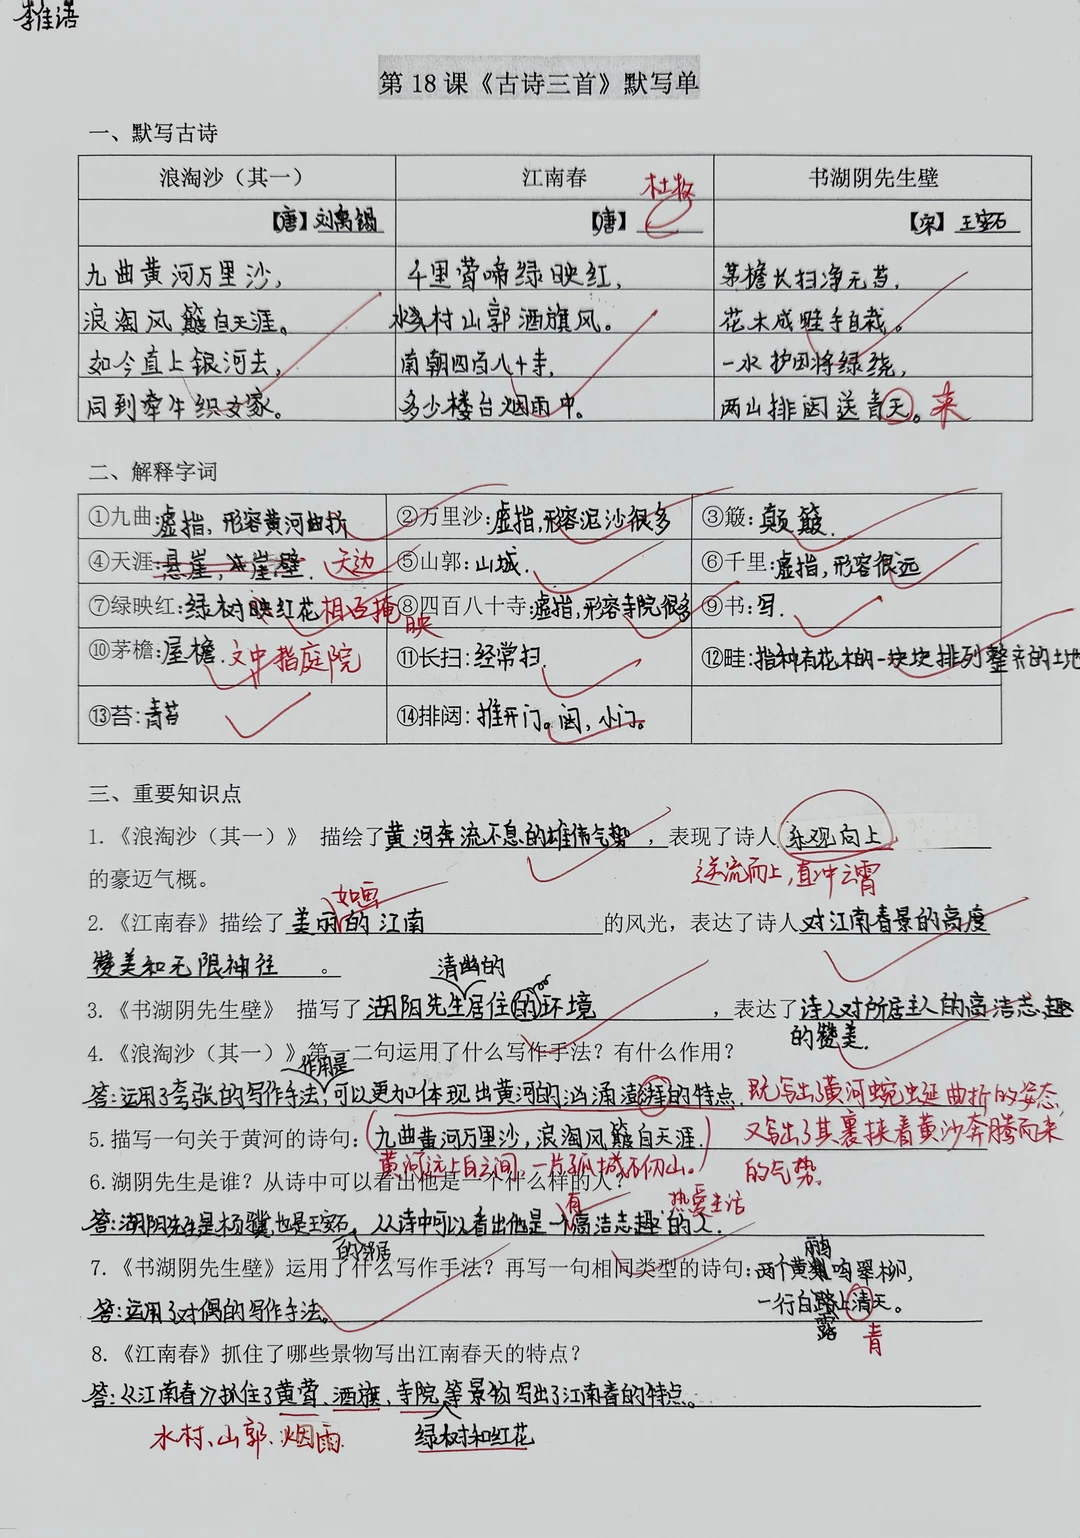 李佳语
第 18 课《古诗三首》默写单
一、默写古诗
浪淘沙（其一） 江南春 书湖阴先生壁
杜牧
【唐】刘禹锡 【唐】 【宋】王安石
九曲黄河万里沙， 千里莺啼绿映红， 茅檐长扫净无苔，
浪淘风簸自天涯。 水村山郭酒旗风。 花木成畦手自栽。
如今直上银河去， 南朝四百八十寺， 一水护田将绿绕，
同到牵牛织女家。 多少楼台烟雨中。 两山排闼送青天。来
二、解释字词
①九曲：虚指，形容黄河曲折 ②万里沙：虚指，形容泥沙很多 ③簸：颠簸.
④天涯：悬崖，崖壁. 天边 ⑤山郭：山城. ⑥千里：虚指，形容很远
⑦绿映红：绿树映红花相互掩映 ⑧四百八十寺：虚指，形容寺院很多 ⑨书：写.
⑩茅檐：屋檐. 文中指庭院 ⑪长扫：经常扫 ⑫畦：指种有花木的一块块排列整齐的土地
⑬苔：青苔 ⑭排闼：推开门。闼，小门。
三、重要知识点
1.《浪淘沙（其一）》 描绘了黄河奔流不息的雄伟气势，表现了诗人乐观向上
的豪迈气概。 逆流而上，直冲云霄
如画
2.《江南春》描绘了美丽的江南的风光，表达了诗人对江南春景的高度
赞美和无限神往。
清幽的
3.《书湖阴先生壁》 描写了湖阴先生居住的环境，表达了诗人对所居主人的高洁志趣
的赞美.
4.《浪淘沙（其一）》第一二句运用了什么写作手法？有什么作用？
作用是
答：运用了夸张的写作手法，可以更加体现出黄河的汹涌澎湃的特点. 既写出了黄河蜿蜒曲折的姿态，
5.描写一句关于黄河的诗句：（九曲黄河万里沙，浪淘风簸自天涯.） 又写出了其裹挟着黄沙奔腾而来
黄河远上白云间，一片孤城万仞山。） 的气势。
6.湖阴先生是谁？从诗中可以看出他是一个什么样的人？
有 热爱生活
答：湖阴先生是杨骥也是王安石，从诗中可以看出他是一个高洁志趣的人.
的邻居
7.《书湖阴先生壁》运用了什么写作手法？再写一句相同类型的诗句：两个黄鹂鸣翠柳，
答：运用了对偶的写作手法。 一行白鹭上清天。
青
8.《江南春》抓住了哪些景物写出江南春天的特点？
答：《江南春》抓住了黄莺、酒旗，寺院等景物写出了江南春的特点。
水村、山郭.烟雨. 绿树和红花